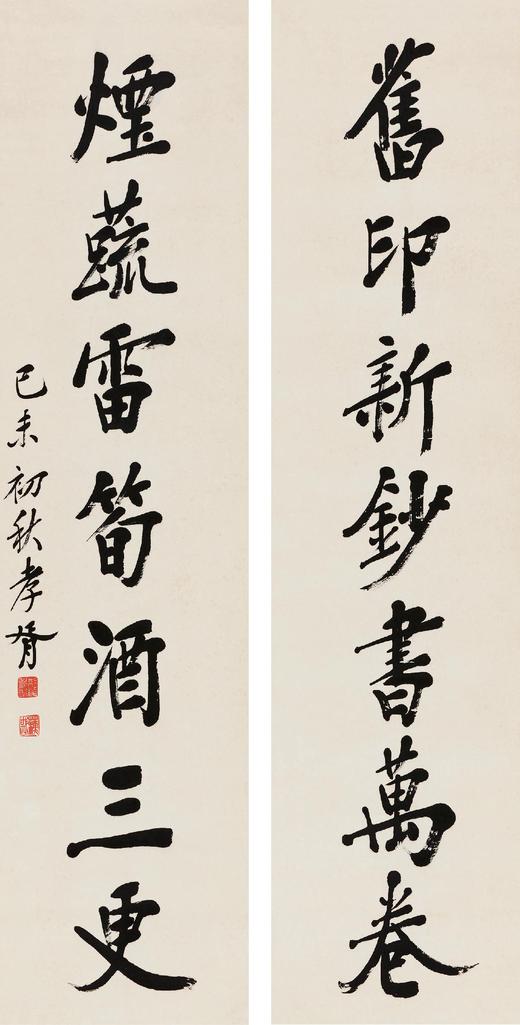 舊印新鈔書萬卷
煙蔬雷筍酒三更
己未初秋孝胥